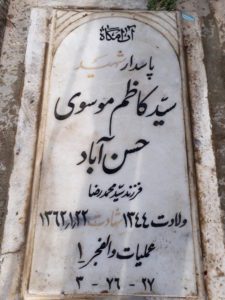 آرامگاه
پاسدار شهید
سیّد کاظم موسوی
حسن آباد
فرزند سیّد محمد رضا
ولادت ۱۳۴۴ شهادت ۱۳۶۲/۱/۲۲
عملیات والفجر ۱
۳ - ۷۶ - ۲۷